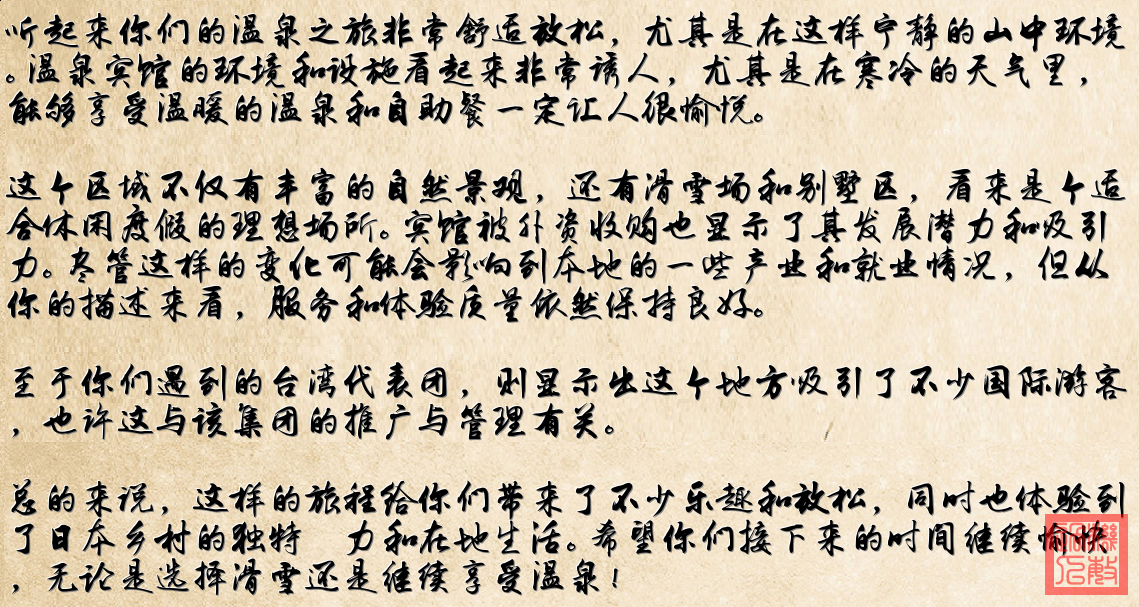 听起来你们的温泉之旅非常舒适放松，尤其是在这样宁静的山中环境
。温泉宾馆的环境和设施看起来非常诱人，尤其是在寒冷的天气里，
能够享受温暖的温泉和自助餐一定让人很愉悦。
这个区域不仅有丰富的自然景观，还有滑雪场和别墅区，看来是个适
合休闲度假的理想场所。宾馆被外资收购也显示了其发展潜力和吸引
力。尽管这样的变化可能会影响到本地的一些产业和就业情况，但从
你的描述来看，服务和体验质量依然保持良好。
至于你们遇到的台湾代表团，则显示出这个地方吸引了不少国际游客
，也许这与该集团的推广与管理有关。
总的来说，这样的旅程给你们带来了不少乐趣和放松，同时也体验到
了日本乡村的独特 力和在地生活。希望你们接下来的时间继续愉快
，无论是选择滑雪还是继续享受温泉！